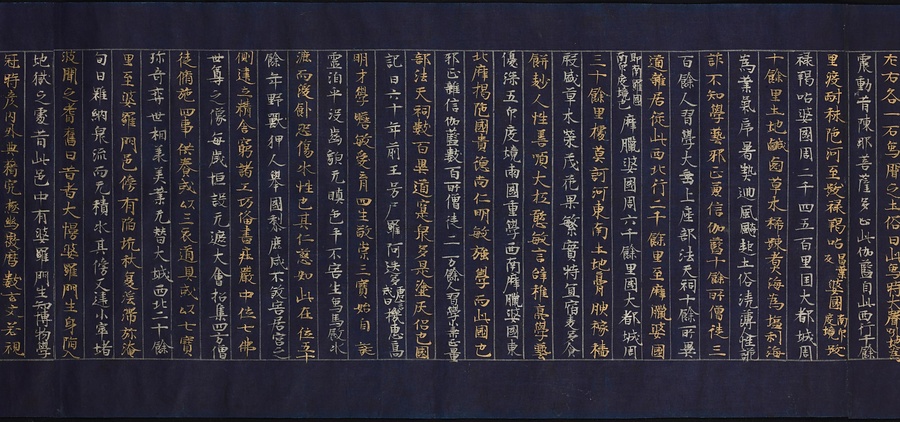 左右各一石為聞之土俗曰此寫時大聲吼地為
震動昔陳那菩薩多止此伽舊自此西行千餘
里渡耐秣陀河至跋祿羯呫昌葉反婆國南印度境跋
祿羯呫婆國周二千四五百里国大都城周
十餘里土地鹹鹵草木稀踈煮海為塩利海
為業氣序暑熱迴風飈起土俗澆薄性詭
詐不知學藝邪正兼信伽藍十餘所僧徒三
百餘人習學大乘上座部法天祠十餘所異
道雜居從此西北行二千餘里至摩臘婆國
即南羅羅國南印度境也摩臘婆國周六千餘里國大都城周
三十餘里據莫訶河東南土地膏腴稼穡
殷盛草木榮茂花菓繁實特宜宿麥多食
餅麨人性善順大抵慜敏言辭雅亮學藝
優深五印度境兩國重學西南摩臘婆國東
北摩揭陀國貴德尚仁明敏強學而此國也
邪正雜信伽藍數百所僧徒二万餘人習學小乘正量
部法天祠數百異道寔眾多是塗灰侶也國
記曰六十年前王号尸羅阿迭多唐言戒日機慧高
明才學贍敏愛育四生敬崇三寶始自誕
靈洎乎沒齒貌无瞋色手不害生烏馬飲水
漉而後飼恐傷水性也其仁慈如此在位五十
餘年野獸狎人舉國黎庶咸不煞害居宮之
側建立精舍窮諸工巧俻盡莊嚴中作七佛
世尊之像每歲恒設无遮大會招集四方僧
徒脩施四事供養或以三衣道具或以七寶
珍奇奕世相美業无替大城西北二十餘
里至婆羅門邑傍有陷坑秋夏淫滯弥淹
旬日雖納眾流而无積水其傍又建小窣堵
波聞之耆舊曰昔者大慢婆羅門生身陷入
地獄之處昔此邑中有婆羅門生知博物學
冠時彥內外典籍究極幽微曆數玄文若視